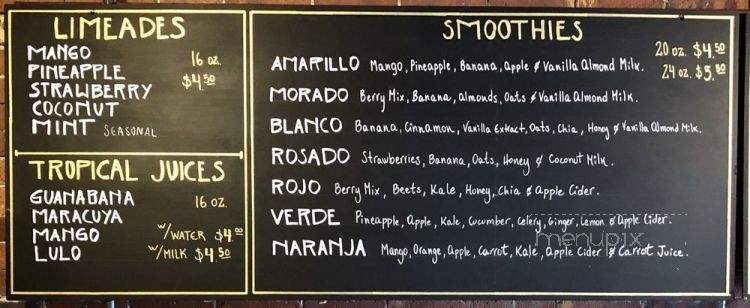 LIMEADES
MANGO
16 oz.
PINEAPPLE
$4.50
STRAWBERRY
COCONUT
MINT SEASONAL
TROPICAL JUICES
GUANABANA
16 oz.
MARACUYA
MANGO
w/WATER $4.00
LULO
w/MILK $4.50
SMOOTHIES
20 oz. $4.50
24 oz. $5.50
AMARILLO Mango, Pineapple, Banana, Apple & Vanilla Almond Milk.
MORADO Berry Mix, Banana, Almonds, Oats & Vanilla Almond Milk.
BLANCO Banana, Cinnamon, Vanilla Extract, Oats, Chia, Honey & Vanilla Almond Milk.
ROSADO Strawberries, Banana, Oats, Honey & Coconut Milk.
ROJO Berry Mix, Beets, Kale, Honey, Chia & Apple Cider.
VERDE Pineapple, Apple, Kale, Cucumber, Celery, Ginger, Lemon & Apple Cider.
NARANJA Mango, Orange, Apple, Carrot, Kale, Apple Cider & Carrot Juice.
menupix